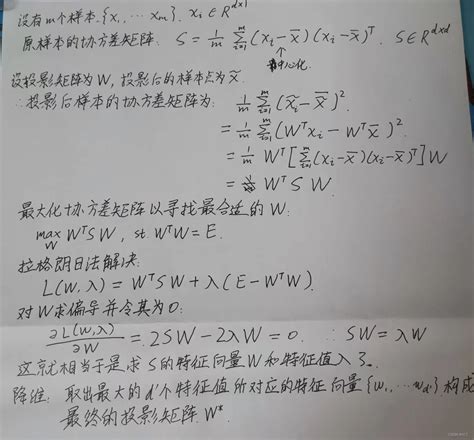 设有m个样本.{x₁,⋯xₘ}. xᵢ∈R^{d×1}
原样本的协方差矩阵: S = 1/m ∑_{i=1}^{m} (xᵢ-x̄)(xᵢ-x̄)ᵀ. S∈R^{d×d}
↑
中心化.
设投影矩阵为W,投影后的样本点为x̃.
∴投影后样本的协方差矩阵为: 1/m ∑_{i=1}^{m} (x̃ᵢ-x̃̄)².
= 1/m ∑_{i=1}^{m} (Wᵀxᵢ - Wᵀx̄)².
= 1/m Wᵀ[∑_{i=1}^{m} (xᵢ-x̄)(xᵢ-x̄)ᵀ]W
= WᵀS W.
最大化协方差矩阵以寻找最合适的W:
max_W WᵀSW, st. WᵀW=E.
拉格朗日法解决:
L(W,λ) = WᵀSW + λ(E-WᵀW).
对W求偏导并令其为0:
∂L(W,λ)/∂W = 2SW-2λW = 0. ∴ SW=λW
这就相当于是求S的特征向量W和特征值λ了.
降维: 取出最大的d'个特征值所对应的特征向量{w₁,⋯w_{d'}}构成
最终的投影矩阵W*.